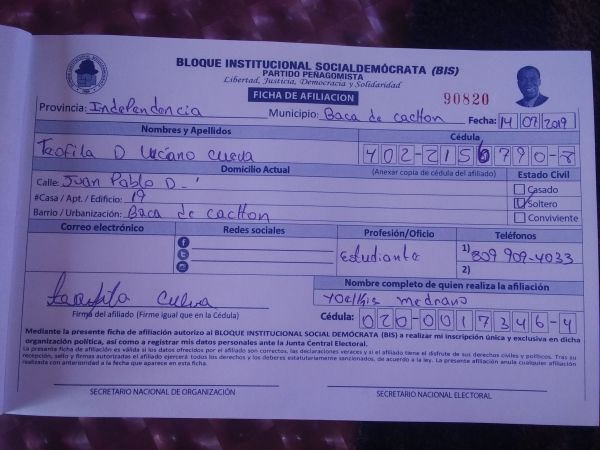 BLOQUE INSTITUCIONAL SOCIALDEMÓCRATA (BIS)
PARTIDO PEÑAGOMISTA
Libertad, Justicia, Democracia y Solidaridad
FICHA DE AFILIACION
90820
Provincia: Independencia Municipio: Baca de cachon Fecha: 14 07 2019
Nombres y Apellidos Cédula
Teofila D cueva 402-2156790-8
Domicilio Actual (Anexar copia de cédula del afiliado) Estado Civil
Calle: Juan Pablo D Casado
#Casa / Apt. / Edificio: 19 Soltero
Barrio / Urbanización: Baca de cachon Conviviente
Correo electrónico Redes sociales Profesión/Oficio Teléfonos
Estudiante 1) 809 909-4033
2)
Nombre completo de quien realiza la afiliación
cueva yoelkis medrano
Firma del afiliado (Firme igual que en la Cédula) Cédula: 020-0017346-4
Mediante la presente ficha de afiliación autorizo al BLOQUE INSTITUCIONAL SOCIAL DEMÓCRATA (BIS) a realizar mi inscripción única y exclusiva en dicha
organización política, así como a registrar mis datos personales ante la Junta Central Electoral.
La presente ficha de afiliación es válida si los datos ofrecidos por el afiliado son correctos, las declaraciones veraces y si el afiliado tiene el disfrute de sus derechos civiles y políticos. Tras su
recepción, sello y firmas autorizadas el afiliado ejercerá todos los derechos y los deberes estatutariamente sancionados, de acuerdo a la ley. La presente afiliación anula cualquier afiliación
realizada con anterioridad a la fecha que aparece en esta ficha.
SECRETARIO NACIONAL DE ORGANIZACIÓN SECRETARIO NACIONAL ELECTORAL